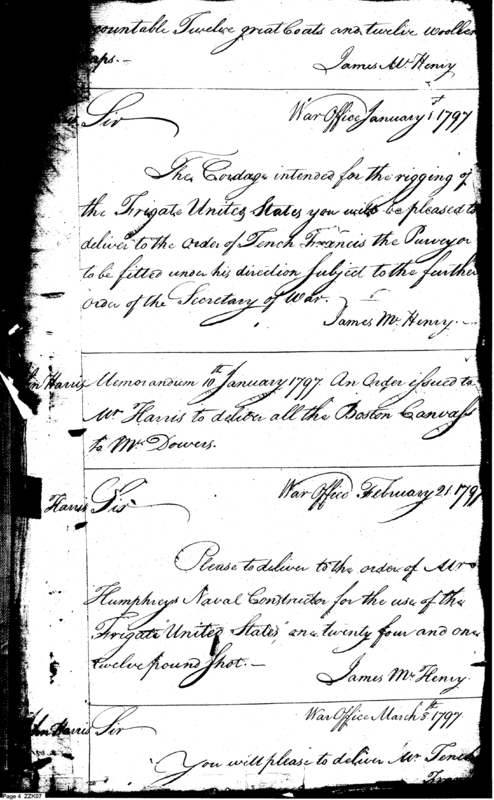 countable Twelve great Coats and twelve woollen
Caps.—
James McHenry
Sir
War Office January 1st 1797
The Cordage intended for the rigging of
the Frigate United States you will be pleased to
deliver to the order of Tench Francis the Purveyor
to be fitted under his direction Subject to the further
order of the Secretary of War.
James McHenry.—
John Harris
Memorandum 10th January 1797 An Order issued to
Mr Harris to deliver all the Boston Canvass
to Mr Dowers.
Harris
Sir
War Office February 21 1797
Please to deliver to the order of Mr
Humphreys Naval Constructor for the use of the
Frigate "United States", one twenty four and one
twelve pound shot.—
James McHenry
John Harris
Sir
War Office March 5th 1797
You will please to deliver Mr Tench
Page 4 ZZK07